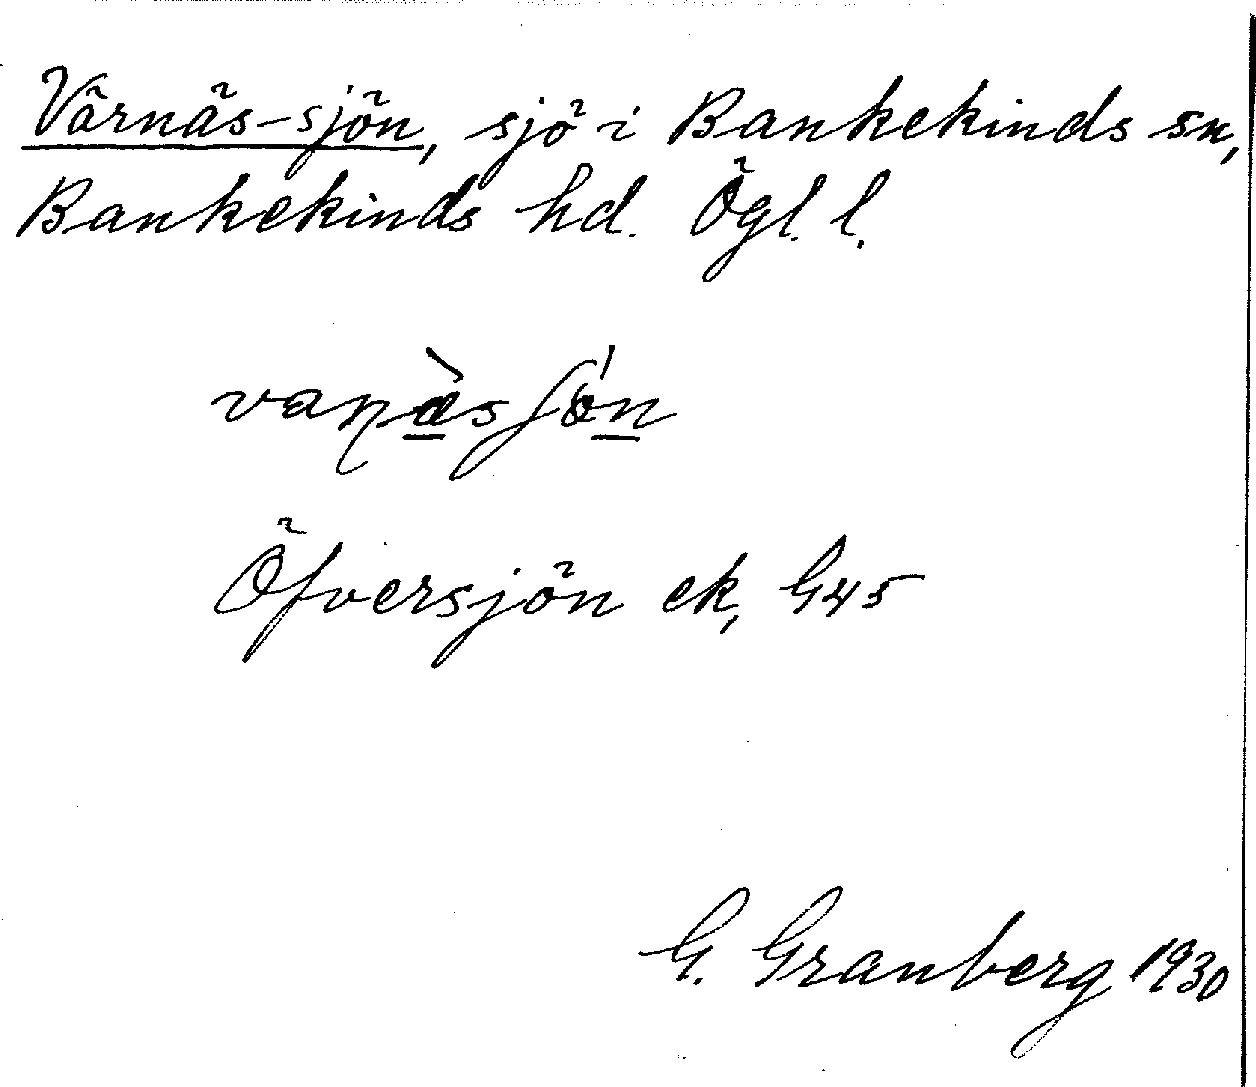 Värnäs-sjön, sjö i Bankekinds sn,
Bankekinds hd. Ögl. l.
Öfversjön ek, G45
G. Granberg 1930